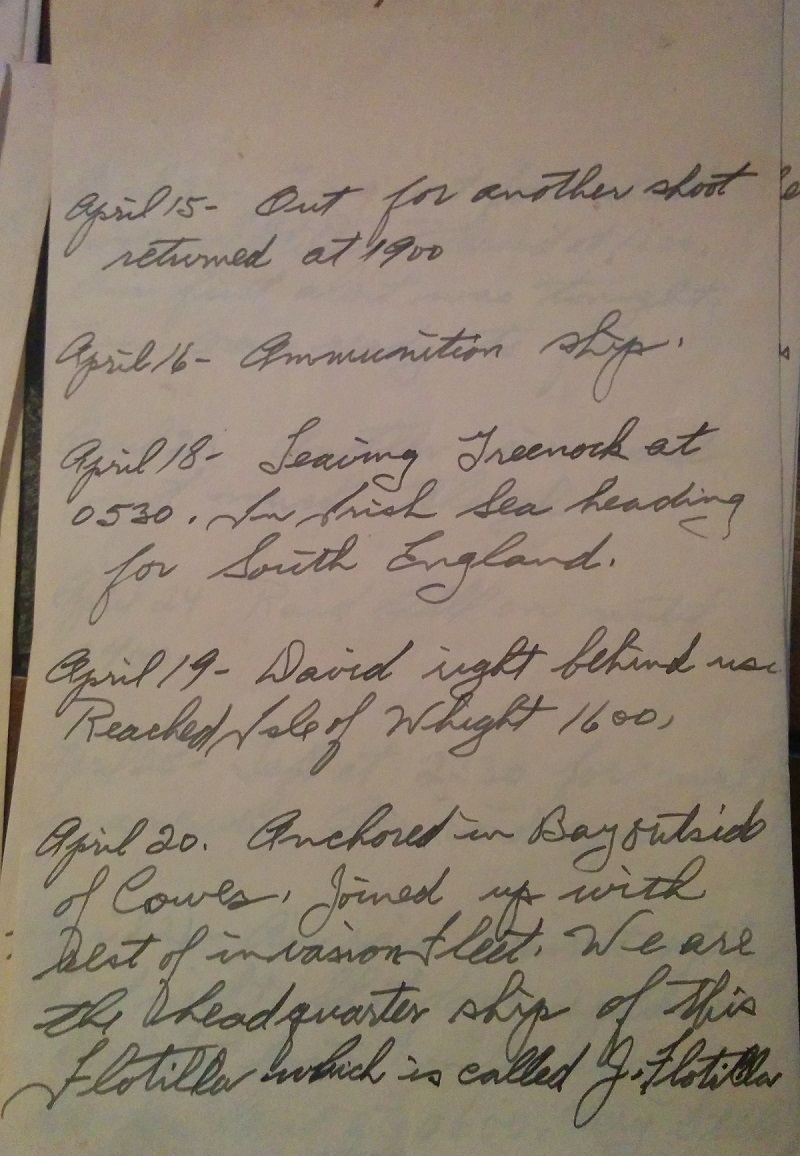 April 15- Out for another shoot
returned at 1900
April 16- Ammunition ship.
April 18- Leaving Greenock at
0530. In Irish Sea heading
for South England.
April 19- David right behind us.
Reached Isle of Whight 1600.
April 20. Anchored in Bay outside
of Cowes. Joined up with
rest of invasion fleet. We are
the headquarter ship of this
Flotilla which is called J. Flotilla